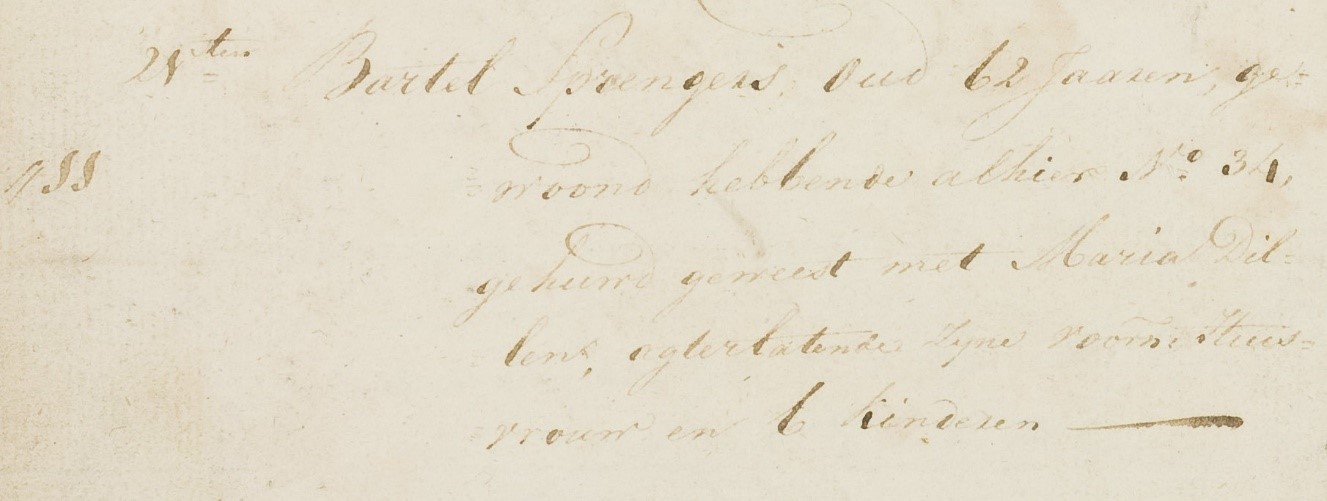 21sten Bartel Sprengers, Oud 62 Jaaren, ge=
=woond hebbende alhier No. 34,
gehuwd geweest met Maria Dil=
lens, agterlatende zyne voorn: Huis=
=vrouw en 6 kinderen